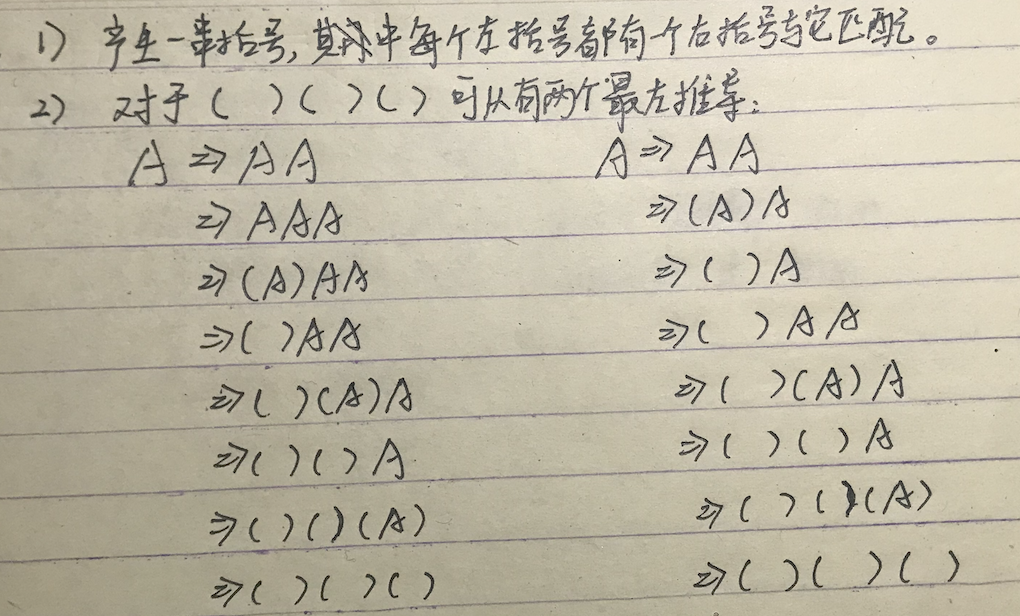 1) 产生一串括号,其中每个左括号都有一个右括号与它匹配。
2) 对于 ( ) ( ) ( ) 可以有两个最左推导:
A ⇒ AA A ⇒ AA
⇒ AAA ⇒ (A)A
⇒ (A)AA ⇒ ( )A
⇒ ( )AA ⇒ ( )AA
⇒ ( )(A)A ⇒ ( )(A)A
⇒ ( )( )A ⇒ ( )( )A
⇒ ( )( )(A) ⇒ ( )( )(A)
⇒ ( )( )( ) ⇒ ( )( )( )